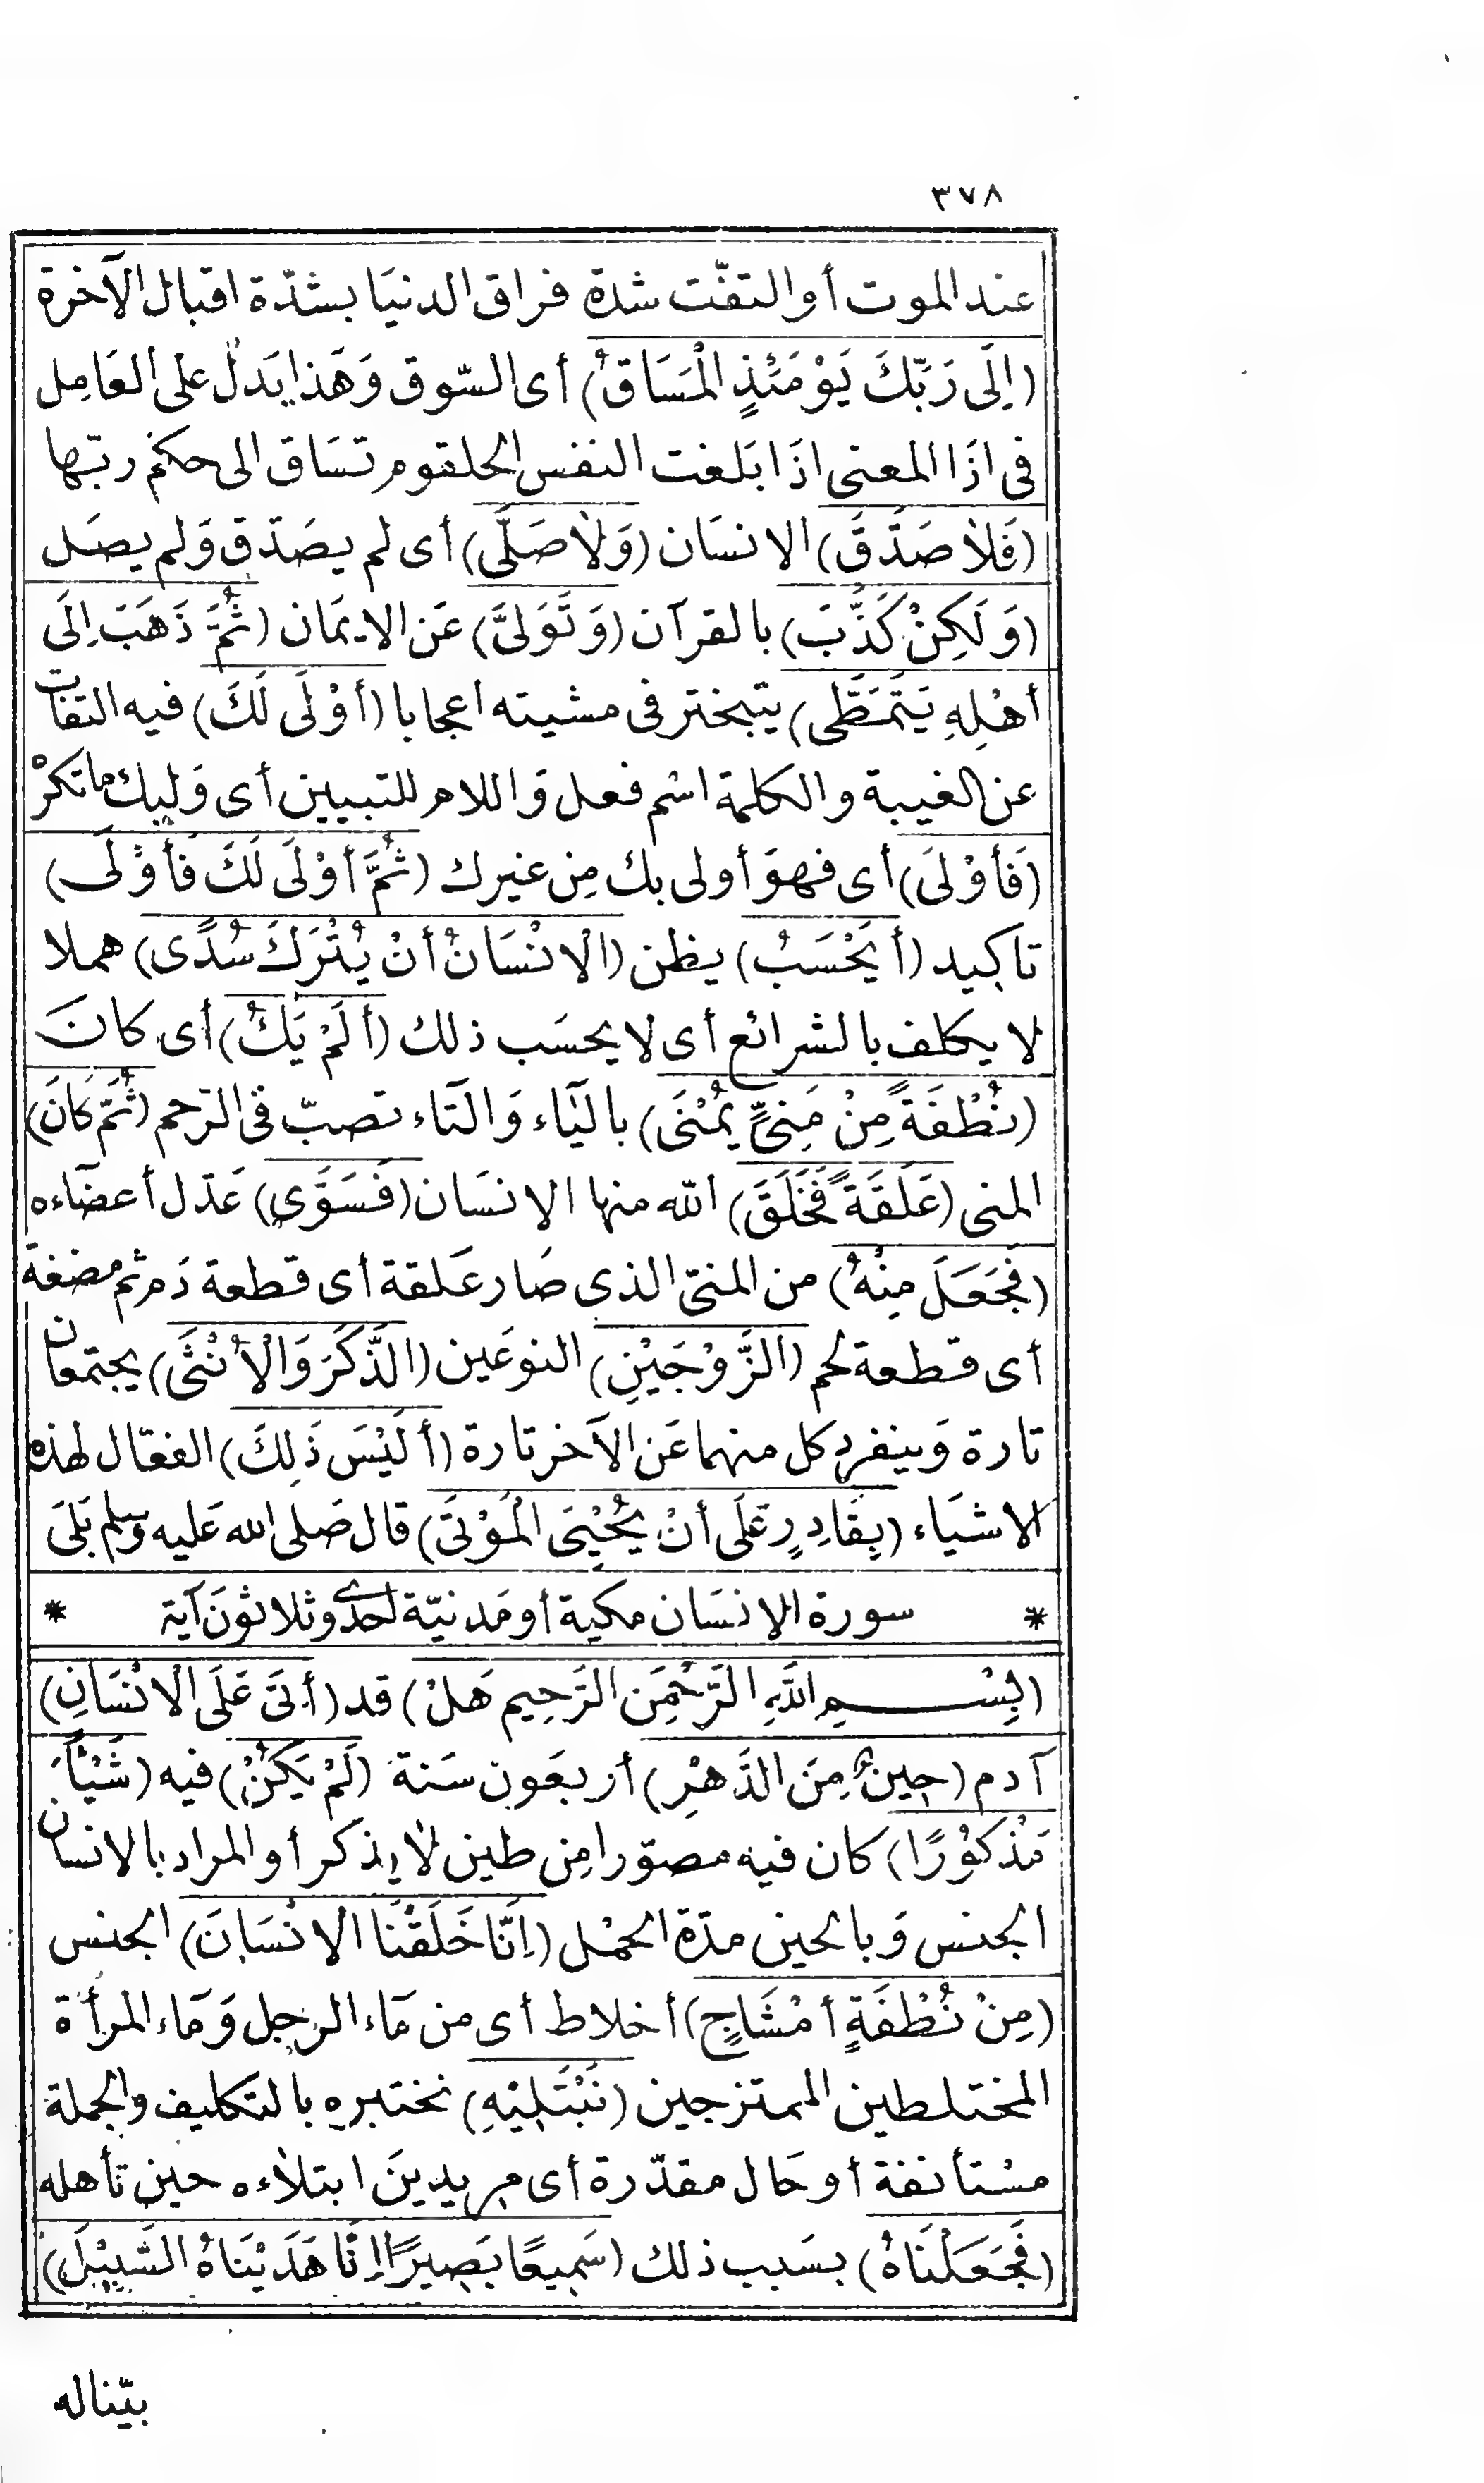 ٣٧٨
عند الموت أو التفّت شدة فراق الدنيَا بشدّة اقبال الآخرة
(اِلَى رَبّكَ يَوْمَئذٍ الْمَسَاقُ) أى السّوق وَهَذا يَدلّ على العَامِل
فى اذَا المعنى اذَا بَلغت النفس الحلقوم تسَاق الى حكم ربّها
(فَلاَ صَدَّقَ) الانسَان (وَلاَ صَلَّى) أى لم يصَدّق وَلم يصَل
(وَلَكِنْ كَذَّبَ) بالقرآن (وَتَوَلىَّ) عَن الايمَان (ثُمَّ ذَهَبَ اِلَى
أهْلِهِ يَتَمَطَّى) يتبختر فى مشيته اعجابا (أوْلَى لَكَ) فيه التفات
عن الغيبة والكلمة اسْم فعل وَاللام للتبيين أى وَليك ما تكرْه
(فَأوْلىَ) أى فهوَ أولى بك مِن غيرك (ثُمَّ أوْلَى لَكَ فَأوْلَى)
تاكيد (أيَحْسَبُ) يظن (الْانْسَانُ أنْ يُتْرَكَ سُدًى) هملا
لا يكلف بالشرائع أى لا يحسَب ذلك (ألَمْ يَكُ) أى كانَ
(نُطْفَةً مِنْ مَنِىٍّ يُمْنَى) باليَاء وَالتاء تصبّ فى الرّحم (ثُمّ كَانَ)
المنى (عَلَقَةً فَخَلَقَ) الله منها الانسَان (فَسَوَّى) عَدّل أعضَاءه
(فَجَعَلَ مِنْهُ) من المنىّ الذى صَار عَلقة أى قطعة دَم ثم مضغة
أى قطعة لحم (الزَّوْجَيْنِ) النوعَين (الذَّكَرَ وَالْأُنْثَى) يجتمعان
تارة وَينفرد كل منهما عَن الآخر تارة (ألَيْسَ ذَلِكَ) الفعّال لهذه
الاشيَاء (بِقَادِرٍ عَلَى أنْ يُحْيِىَ الْمَوْتَى) قال صَلى الله عَليه وسلم بَلَى
* سورة الانسَان مكية أو مَدنيّة احدى وثلاثونَ آية *
(بِسْمِ اللَّهِ الرَّحْمَنِ الرَّحِيمِ هَلْ) قد (أتَى عَلَى الْانْسَانِ)
آدم (حِينٌ مِنَ الدَّهْرِ) أربعَون سَنة (لَمْ يَكُنْ) فيه (شَيْأً
مَذْكُوْرًا) كان فيه مصوّرا مِن طين لا يذكر أو المراد بالانسان
الجنس وَبالحين مدّة الحمْل (اِنَّا خَلَقْنَا الانْسَانَ) الجنس
(مِنْ نُطْفَةٍ أمْشَاجٍ) أخلاط أى من مَاء الرجل وَمَاء المرأة
المختلطين الممتزجين (نَبْتَلِيْهِ) نختبره بالتكليف والجملة
مسْتأنفة أو حَال مقدّرة أى مريدينَ ابتلاءه حين تأهله
(فَجَعَلْنَاهُ) بسَبب ذلك (سَمِيعًا بَصِيرًا اِنَّا هَدَيْنَاهُ السَّبِيْلَ)
بيّنا له